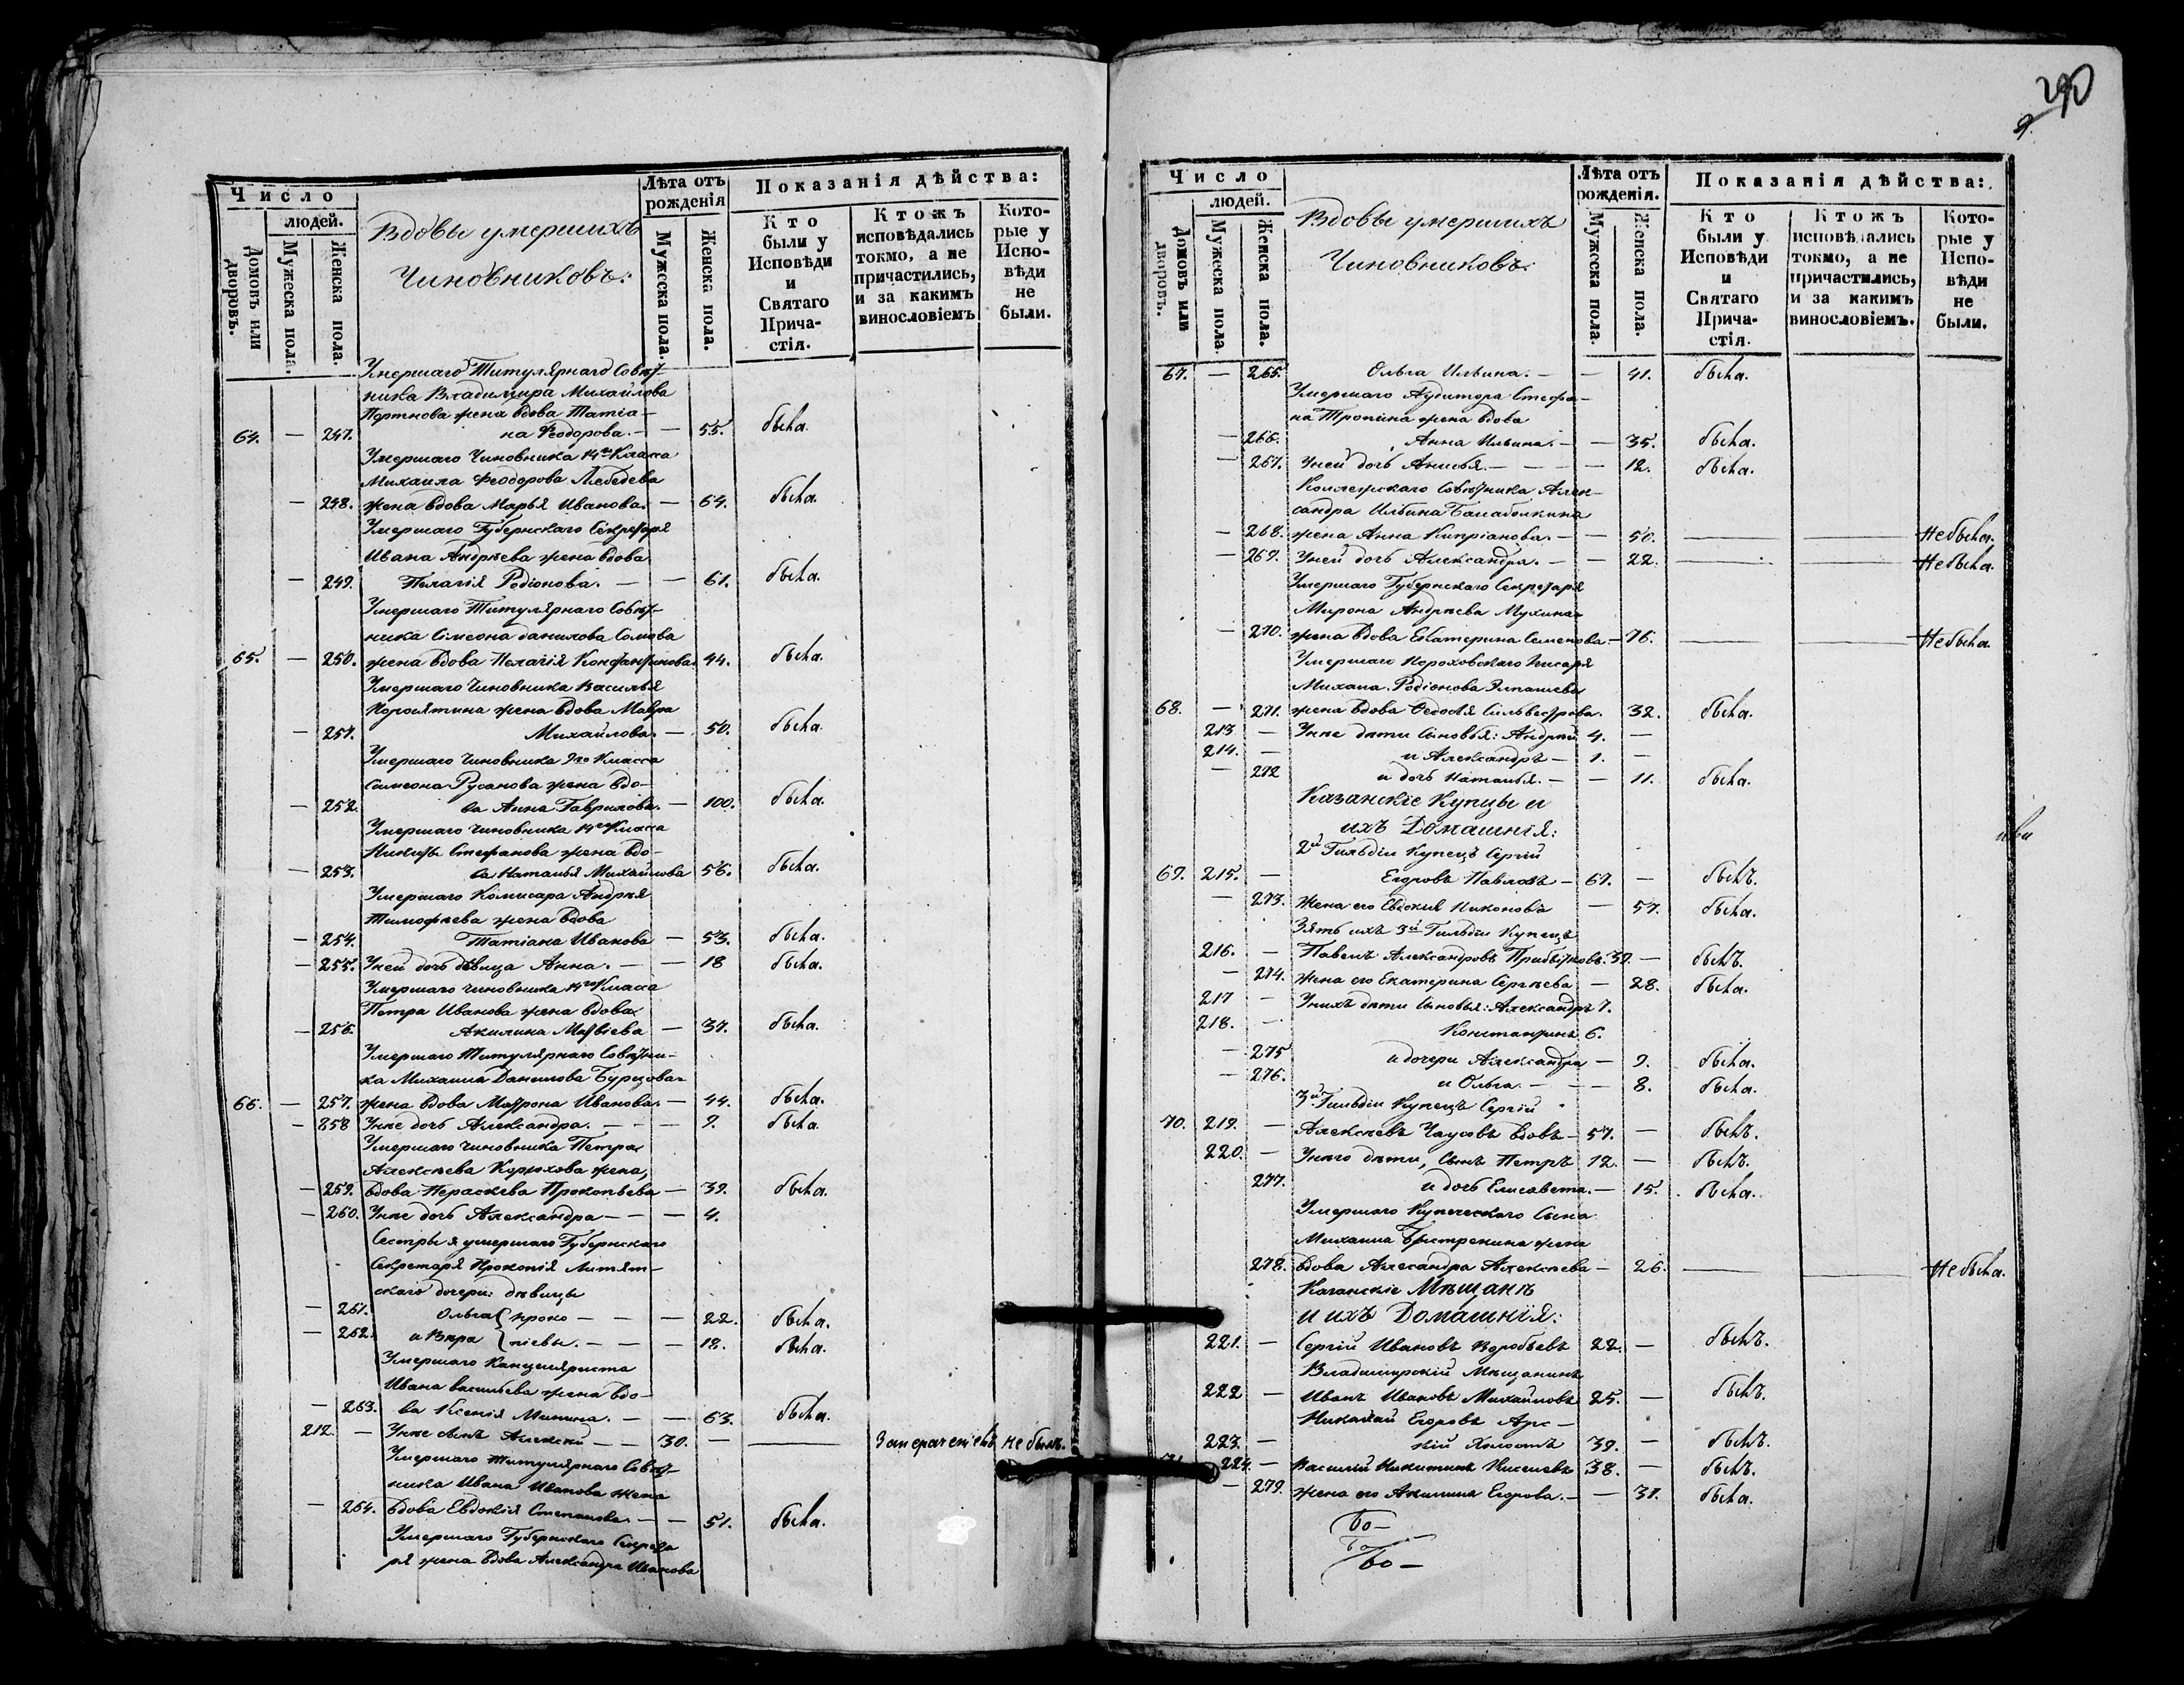 Число
людей.
Домовъ или дворовъ.
Мужеска пола.
Женска пола.
Вдовы умершихъ
Чиновниковъ:
Лѣта отъ рожденія
Мужеска пола.
Женска пола.
Показанія дѣйства:
Кто были у Исповѣди и Святаго Причастія.
Ктожъ исповѣдались токмо, а не причастились, и за какимъ винословіемъ
Которые у Исповѣди не были.
Умершаго Титулярнаго Совѣт-
ника Владимира Михайлова
Портнова жена вдова Татіа-
64. — 247. на Феодорова. — — 55. была.
Умершаго Чиновника 14го Класса
Михаила Феодорова Лебедева
— 248. жена вдова Марья Иванова. — 64. была.
Умершаго Губернскаго Секретаря
Ивана Андреева жена вдова
— 249. Пелагія Родіонова. — — 61. была.
Умершаго Титулярнаго Совѣт-
ника Симеона Данилова Сомова
65. — 250. жена вдова Пелагія Константинова. 44. была.
Умершаго Чиновника Василья
Поросятина жена вдова Мавра
— 251. Михайлова. — 50. была.
Умершаго Чиновника 9го Класса
Симеона Русанова жена вдо-
— 252. ва Анна Гаврилова. — 100. была.
Умершаго Чиновника 14го Класса
Никиты Стефанова жена вдо-
— 253. ва Наталья Михайлова 56. была.
Умершаго Комисара Андрея
Тимофеева жена вдова
— 254. Татіана Иванова — 53. была.
— 255. У ней дочь дѣвица Анна. — — 18 была.
Умершаго чиновника 14го Класса
Петра Иванова жена вдова
— 256. Акилина Матвіева — 37. была.
Умершаго Титулярнаго Совѣтни-
ка Михаила Данилова Бурцова
66. — 257. жена вдова Матрона Иванова. — 44. была.
— 258 У нее дочь Александра. — — — 9. была.
Умершаго чиновника Петра
Алексѣева Корюхова жена,
— 259. вдова Параскева Прокопьева — 39. была.
— 260. У нее дочь Александра — — — 4.
Сестры я умершаго Губернскаго
Секретаря Прокопія
скаго дочери: дѣвицы
— 261. Ольга { проко — — — 22. была.
— 262. и Вѣра { піевы. — — — 18. была.
Умершаго Канцеляриста
Ивана Васильева жена вдо-
— 263. ва Ксенія Минина. — — 63. была.
212. — У нее сынъ Алексѣй — — 30. — — не былъ.
Умершаго Титулярнаго Совѣт-
ника Ивана Иванова жена
— 264. вдова Евдокія Степанова. — — 51. была.
Умершаго Губернскаго Секрета
ря жена вдова Александра Иванова
290
Число
людей.
Домовъ или дворовъ.
Мужеска пола.
Женска пола.
Вдовы умершихъ
Чиновниковъ:
Лѣта отъ рожденія.
Мужеска пола.
Женска пола.
Показанія дѣйства:
Кто были у Исповѣди и Святаго Причастія.
Ктожъ исповѣдались токмо, а не причастились, и за какимъ винословіемъ.
Которые у Исповѣди не были.
67. — 265. Ольга Ильина. — — 41. была.
Умершаго Аудитора Стефа-
на Тропина жена вдова
— 266. Анна Ильина. — — 35. была.
— 267. У ней дочь Анисья. — — — — 12. была.
Коллежскаго Совѣтника Алек-
сандра Ильина Балабошкина
— 268. жена Анна Кипріанова. — — 50. — — Не была.
— 269. У ней дочь Александра. — — 22. — — Не была.
Умершаго Губернскаго Секретаря
Мирона Андреева Мухина
— 270. жена вдова Екатерина Семенова — 76. — — Не была.
Умершаго Пороховскаго писаря
Михаила Родіонова
68. — 271. жена вдова Ѳедосья Сильвестрова. 32. была.
213 — У нее дѣти сыновья: Андрей 4. —
214. — и Александръ — 1. —
— 272 и дочь Наталья. — — 11. была.
Казанскіе Купцы и
ихъ Домашнія:
2й Гильдіи Купецъ Сергій
69. 215. — Егоровъ Павловъ — 67. — былъ.
— 273. Жена его Евдокія Никонова — 57. была.
Зять ихъ 3й Гильдіи Купецъ
216. — Павелъ Александровъ Прибытковъ. 39. — былъ.
— 274. Жена его Екатерина Сергѣева — 28. была.
217 — У нихъ дѣти сыновья: Александръ 7.
218. — Константинъ 6.
— 275 и дочери Александра — 9. была.
— 276. и Ольга. — — — 8. была.
3й Гильдіи Купецъ Сергій
70. 219. — Алексѣевъ Чаусовъ вдовъ — 57. — былъ.
220. — У него дѣти, сынъ Петръ 12. — былъ.
277. и дочь Елисавета. — 15. была.
Умершаго Купеческаго Сына
Михаила Быстрекина жена
278. вдова Александра Алексѣева — 26. — — Не была.
Казанскіе Мѣщане
и ихъ Домашнія:
221. — Сергій Ивановъ Воробьевъ 22. — былъ.
Владимирскій Мѣщанинъ
222 — Иванъ Ивановъ Михайловъ 25. — былъ.
Николай Егоровъ Арс-
223. — кій Холостъ 39. — былъ.
71. 224. — Василій Никитинъ Киселевъ 38. — былъ.
— 279. жена его Акилина Егорова. — — 31. была.
60 —
60 —